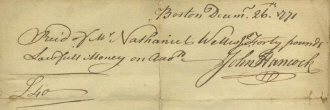 Boston Decmr. 26th. 1771
Rec'd of Mr. Nathaniel Wells Forty pounds
Lawfull Money on Acco.
John Hancock
£40